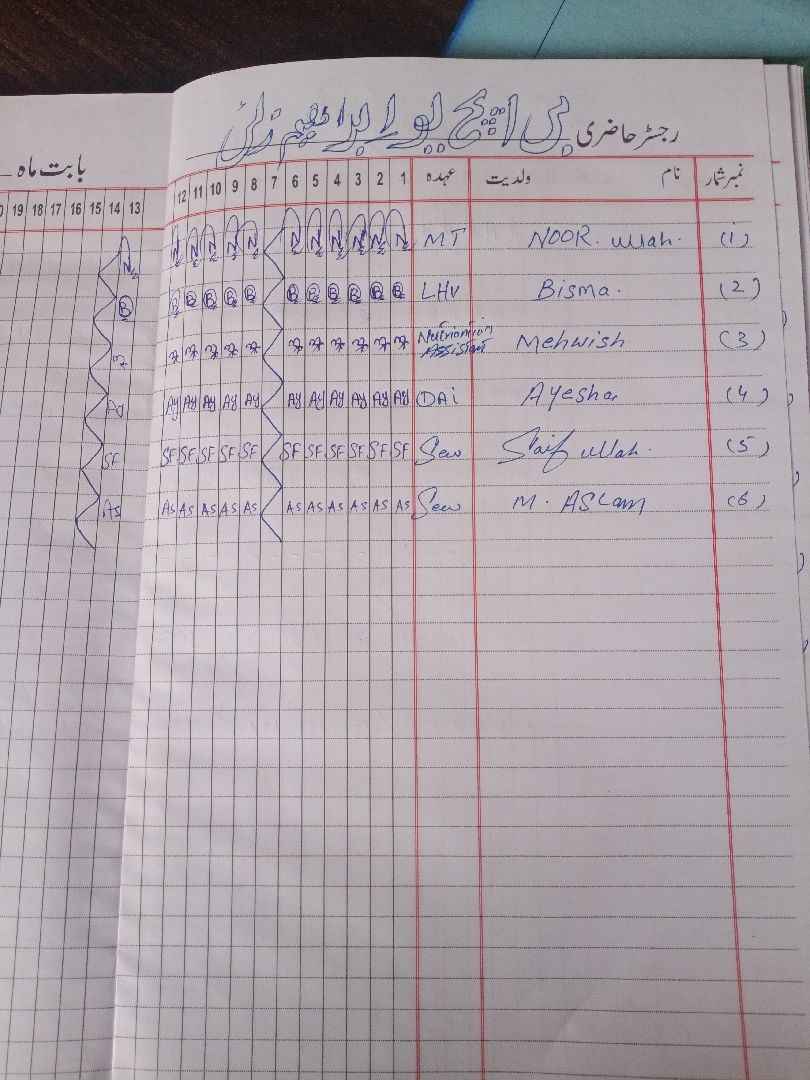 رجسٹر حاضری بی ایچ یو ابراہیم زئی
بابت ماہ
نمبر شمار نام ولدیت عہدہ 1 2 3 4 5 6 7 8 9 10 11 12
13 14 15 16 17 18 19
(1) NOOR. ullah. MT N N N N N N N N N N N N
(2) Bisma. LHV B B B B B B B B B B B B
(3) Mehwish Assistant
(4) Ayesha DAi Ay Ay Ay Ay Ay Ay Ay Ay Ay Ay Ay A
(5) Saif ullah. SF SF SF SF SF SF SF SF SF SF SF SF
(6) M. ASLam As As As As As As As As As As As As